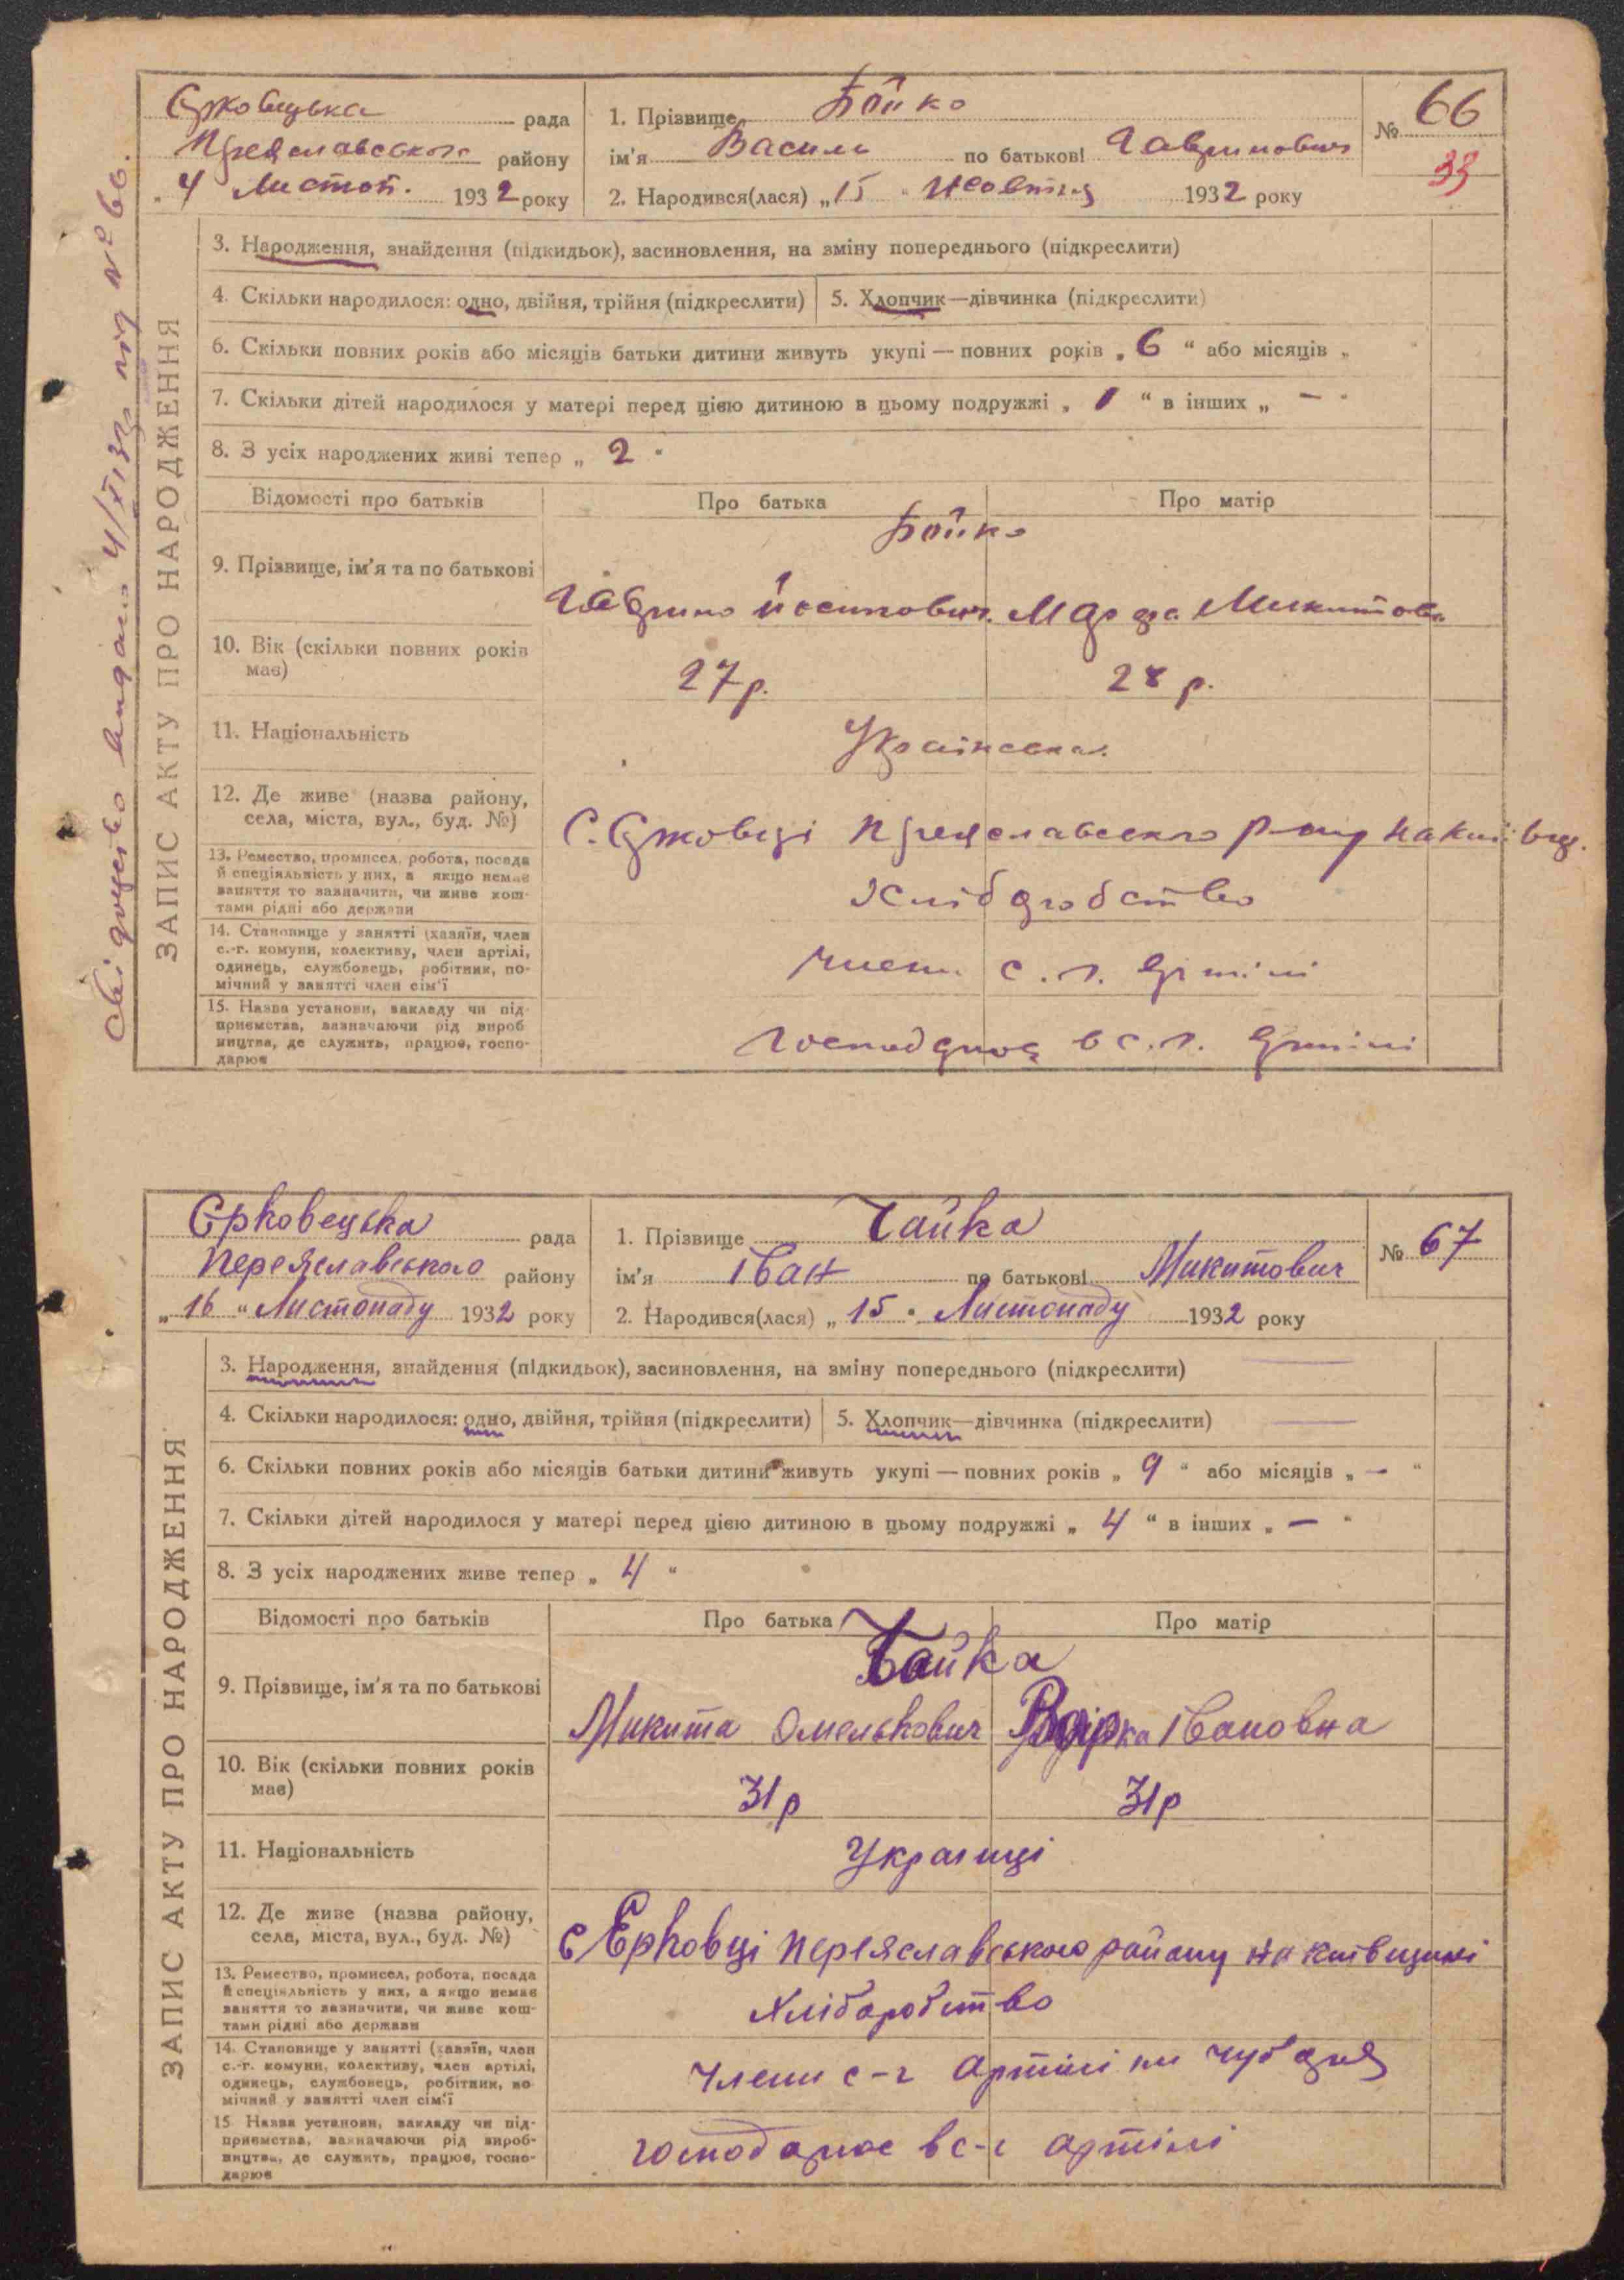 Єрковецька рада
Преяславського району
" 4 Листоп. 1932 року
1. Прізвище Бойко
ім'я Василь по батькові Гаврилович
2. Народився(лася) „15 " Жовтня 1932 року
№ 66
33
Свідоцтво видано 4/XI 32р під № 66.
ЗАПИС АКТУ ПРО НАРОДЖЕННЯ
3. Народження, знайдення (підкидьок), засиновлення, на зміну попереднього (підкреслити)
4. Скільки народилося: одно, двійня, трійня (підкреслити) 5. Хлопчик—дівчинка (підкреслити)
6. Скільки повних років або місяців батьки дитини живуть укупі — повних років „ 6 “ або місяців „ “
7. Скільки дітей народилося у матері перед цією дитиною в цьому подружжі „ 1 “ в інших „ — “
8. З усіх народжених живі тепер „ 2 “
Відомості про батьків Про батька Про матір
Бойко
9. Прізвище, ім'я та по батькові
Гаврило Йосипович. Марфа Микитова
10. Вік (скільки повних років
має)
27р. 28 р.
11. Національність Українська.
12. Де живе (назва району,
села, міста, вул., буд. №)
С. Єрковці Преяславського р-ну на Київщ.
13. Ремество, промисел, робота, посада
й спеціяльність у них, а якщо немає
заняття то зазначити, чи живе кош-
тами рідні або держави
Хліборобство
14. Становище у занятті (хазяїн, член
с.-г. комуни, колективу, член артілі,
одинець, службовець, робітник, по-
мічний у занятті член сім'ї
члени с. г. Артілі
15. Назва установи, закладу чи під-
приємства, зазначаючи рід вироб
ництва, де служить, працює, госпо-
дарює
Господарює в с. г. Артілі
Єрковецька рада
Переяславського району
„ 16 “ Листопаду 1932 року
1. Прізвище Чайка
ім'я Іван по батькові Микитович
2. Народився(лася) „ 15 “ Листопаду 1932 року
№ 67
ЗАПИС АКТУ ПРО НАРОДЖЕННЯ
3. Народження, знайдення (підкидьок), засиновлення, на зміну попереднього (підкреслити)
4. Скільки народилося: одно, двійня, трійня (підкреслити) 5. Хлопчик—дівчинка (підкреслити)
6. Скільки повних років або місяців батьки дитини живуть укупі — повних років „ 9 “ або місяців „ — “
7. Скільки дітей народилося у матері перед цією дитиною в цьому подружжі „ 4 “ в інших „ — “
8. З усіх народжених живе тепер „ 4 “
Відомості про батьків Про батька Про матір
Чайка
9. Прізвище, ім'я та по батькові
Микита Омелькович Івановна
10. Вік (скільки повних років
має)
31р 31р
11. Національність Українці
12. Де живе (назва району,
села, міста, вул., буд. №)
С Єрковці Переяславського району на Київщині
13. Ремество, промисел, робота, посада
й спеціяльність у них, а якщо немає
заняття то зазначити, чи живе кош-
тами рідні або держави
Хліборобство
14. Становище у занятті (хазяїн, член
с.-г. комуни, колективу, член артілі,
одинець, службовець, робітник, по
мічний у занятті член сім'ї
Члени с-г артілі ім Чубаря
15 Назва установи, закладу чи під-
приємства, зазначаючи рід вироб-
ництва, де служить, працює, госпо-
дарює
господарює в с-г артілі